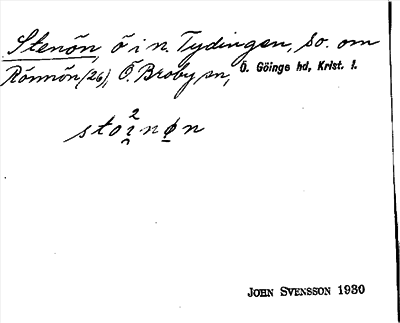 Stenön, ö i n. Tydingen, so. om
Rönnön (26), Ö. Broby sn, Ö. Göinge hd, Krist. l.
2
sto i nøn
JOHN SVENSSON 1930